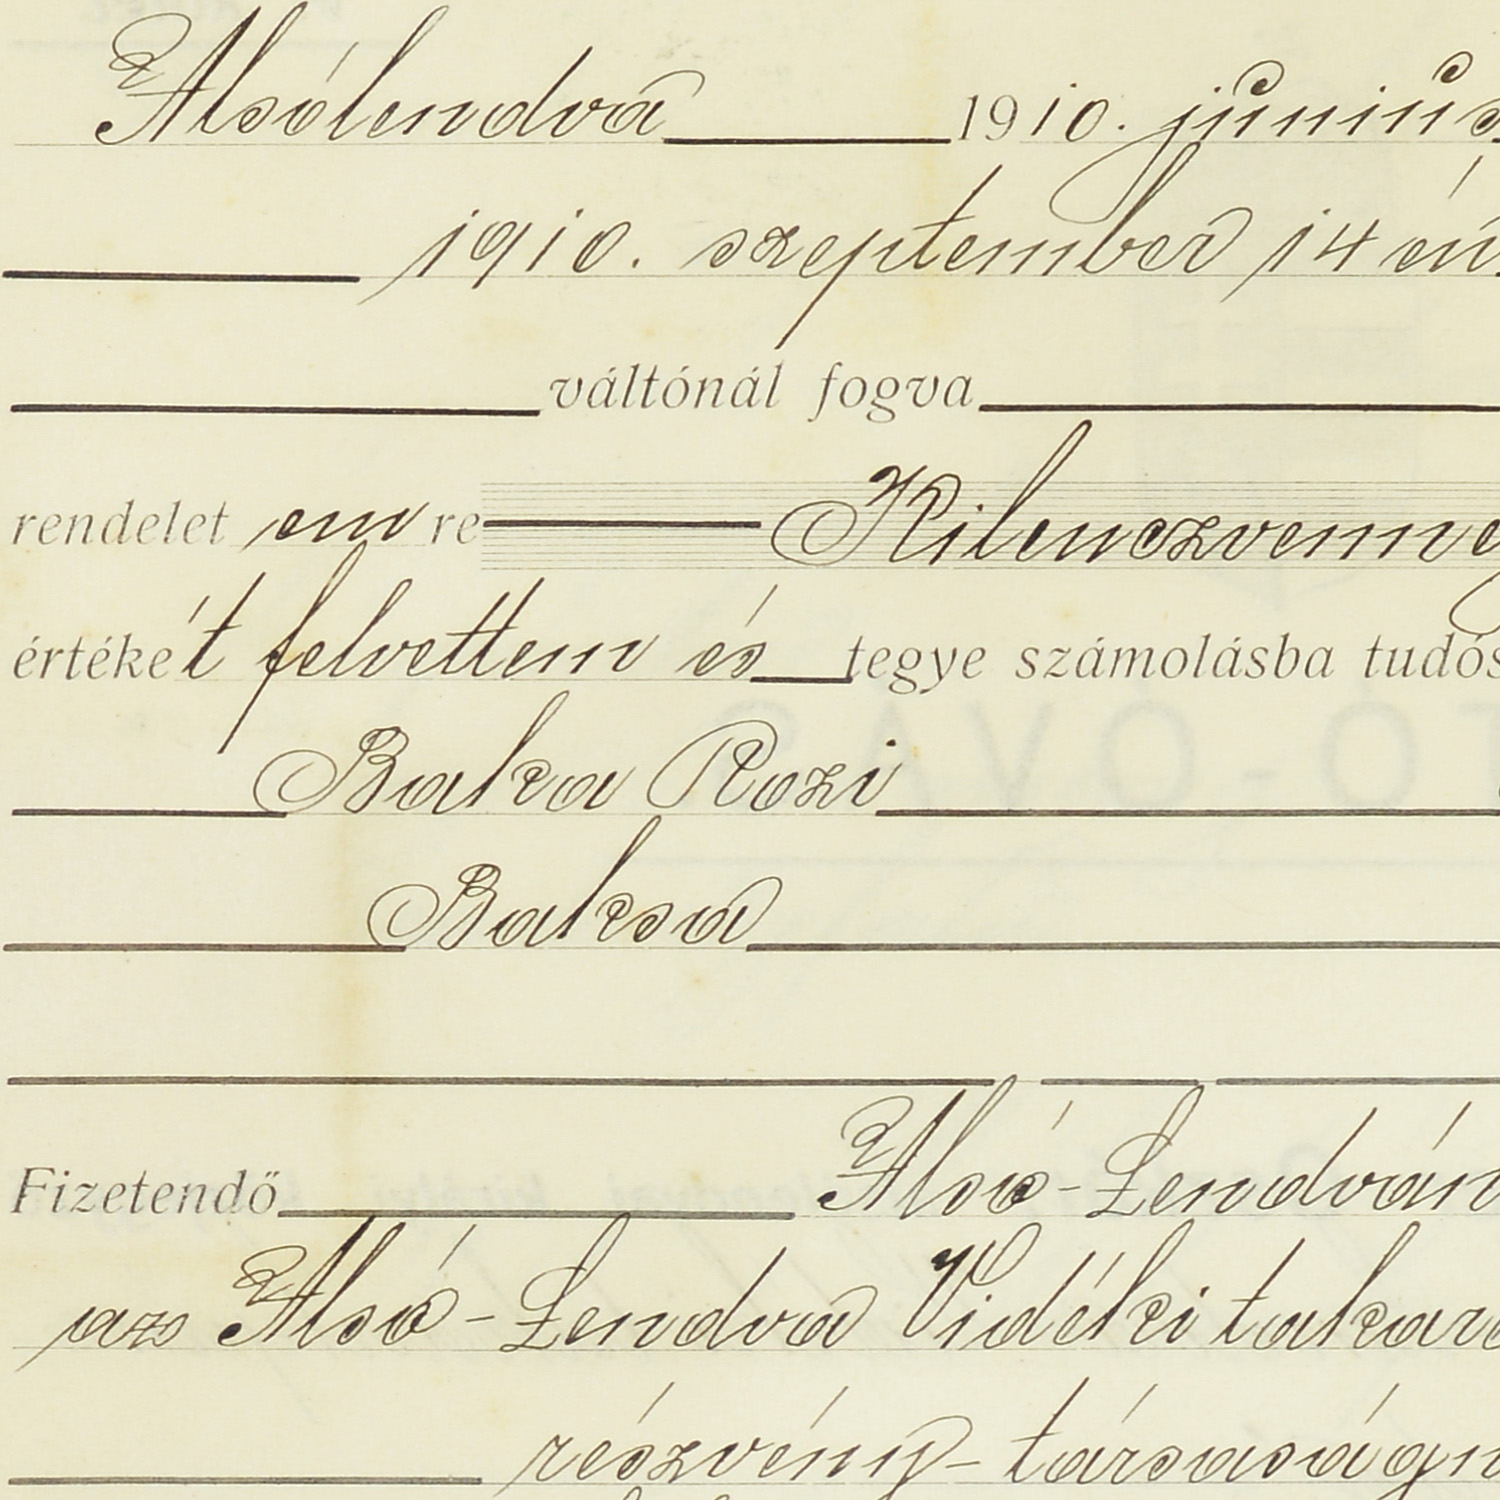 Alsólendva 1910. június
1910. szeptember 14 én
váltónál fogva
rendelet em re Kilenczvenneg
értékét felvettem és tegye számolásba tudós
Baksa Rozi
Baksa
Fizetendő Alsó-Lendván
az Alsó-Lendva Vidéki takaré
részvény-társaságn